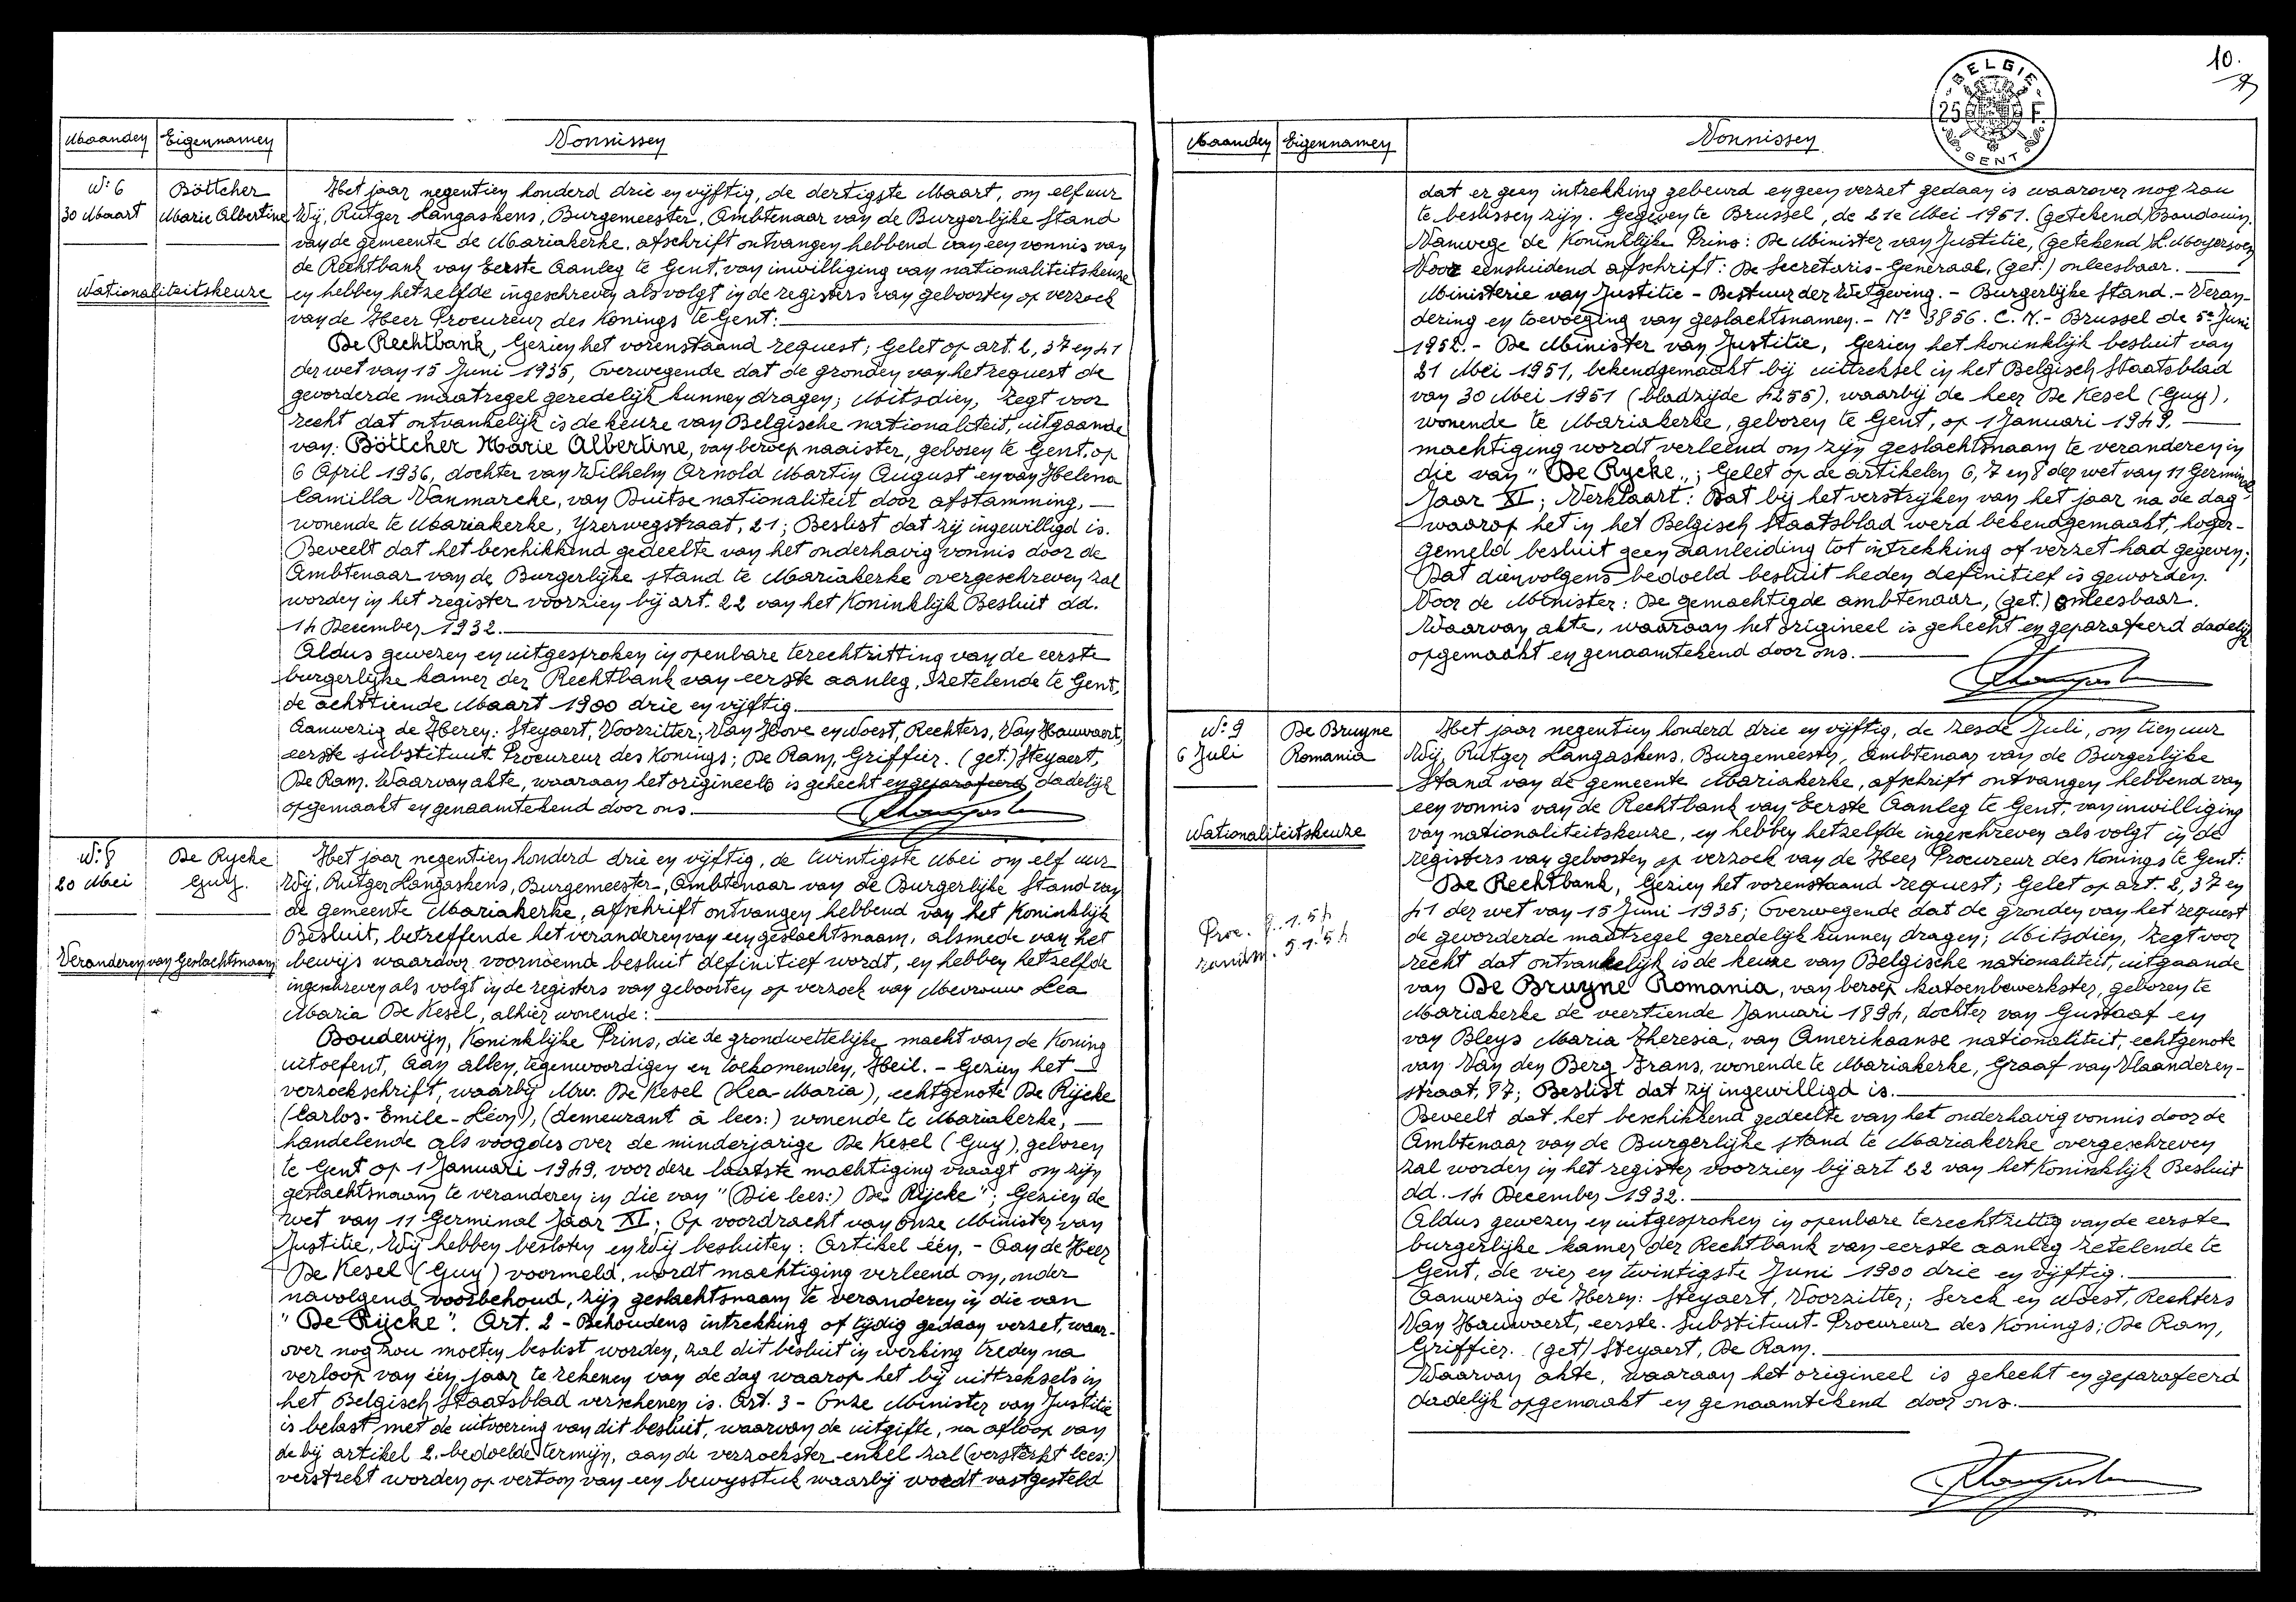 Maanden Eigennamen Vonnissen
N: 6 Böttcher
30 Maart Marie Albertine
Nationaliteitskeuze
Het jaar negentien honderd drie en vijftig, de dertigste Maart, om elf uur
Wij, Rutger Langaskens, Burgemeester, Ambtenaar van de Burgerlijke Stand
van de gemeente de Mariakerke, afschrift ontvangen hebbend van een vonnis van
de Rechtbank van Eerste Aanleg te Gent, van inwilliging van nationaliteitskeuze
en hebben hetzelfde ingeschreven als volgt in de registers van geboorten op verzoek
van de Heer Procureur des Konings te Gent:
De Rechtbank, Gezien het vorenstaand request; Gelet op art. 2, 37 en 41
der wet van 15 Juni 1935, Overwegende dat de gronden van het request de
gevorderde maatregel geredelijk kunnen dragen; Mitsdien, Zegt voor
recht dat ontvankelijk is de keuze van Belgische nationaliteit, uitgaande
van: Böttcher Marie Albertine, van beroep naaister, geboren te Gent, op
6 April 1936, dochter van Wilhelm Arnold Martin August en van Helena
Camilla Vanmarcke, van Duitse nationaliteit door afstamming,
wonende te Mariakerke, Yzerwegstraat, 21; Beslist dat zij ingewilligd is.
Beveelt dat het beschikkend gedeelte van het onderhavig vonnis door de
Ambtenaar van de Burgerlijke stand te Mariakerke overgeschreven zal
worden in het register voorzien bij art. 22 van het Koninklijk Besluit dd.
14 December 1932.
Aldus gewezen en uitgesproken in openbare terechtzitting van de eerste
burgerlijke kamer der Rechtbank van eerste aanleg, zetelende te Gent,
de achttiende Maart 1900 drie en vijftig.
Aanwezig de Heren: Steyaert, Voorzitter; Van Hove en Woest, Rechters, Van Hauwaert,
eerste substituut Procureur des Konings; De Ram, Griffier. (get.) Steyaert,
De Ram. Waarvan akte, waaraan het origineels is gehecht en geparafeerd, dadelijk
opgemaakt en genaamtekend door ons.
N: 8 De Rycke
20 Mei Guy.
Veranderen van Geslachtsnaam
Het jaar negentien honderd drie en vijftig, de twintigste Mei om elf uur
Wij, Rutger Langaskens, Burgemeester, Ambtenaar van de Burgerlijke Stand van
de gemeente Mariakerke, afschrift ontvangen hebbend van het Koninklijk
Besluit, betreffende het veranderen van een geslachtsnaam, alsmede van het
bewijs waardoor voornoemd besluit definitief wordt, en hebben hetzelfde
ingeschreven als volgt in de registers van geboorten op verzoek van Mevrouw Lea
Maria De Kesel, alhier wonende:
Boudewijn, Koninklijke Prins, die de grondwettelijke macht van de Koning
uitoefent, Aan allen, tegenwoordigen en toekomenden, Heil. - Gezien het
verzoekschrift, waarbij Mw. De Kesel (Lea-Maria), echtgenote De Rijcke
(Carlos-Emile-Léon), (demeurant à lees:) wonende te Mariakerke,
handelende als voogdes over de minderjarige De Kesel (Guy), geboren
te Gent op 1 Januari 1949, voor deze laatste machtiging vraagt om zijn
geslachtsnaam te veranderen in die van "(Die lees:) De Rijcke"; Gezien de
wet van 11 Germinal Jaar XI; Op voordracht van Onze Minister van
Justitie, Wij hebben besloten en Wij besluiten: Artikel één, - Aan de Heer
De Kesel (Guy) voormeld, wordt machtiging verleend om, onder
navolgend voorbehoud, zijn geslachtsnaam te veranderen in die van
"De Rijcke". Art. 2 - Behoudens intrekking of tijdig gedaan verzet, waar-
over nog zou moeten beslist worden, zal dit besluit in werking treden na
verloop van één jaar te rekenen van de dag waarop het bij uittreksels in
het Belgisch Staatsblad verschenen is. Art. 3 - Onze Minister van Justitie
is belast met de uitvoering van dit besluit, waarvan de uitgifte, na afloop van
de bij artikel 2. bedoelde termijn, aan de verzoekster enkel zal (versterkt lees:)
verstrekt worden op vertoon van een bewysstuk waarbij wordt vastgesteld
10.
BELGIE
25 F.
GENT
Maanden Eigennamen Vonnissen
dat er geen intrekking gebeurd en geen verzet gedaan is waarover nog zou
te beslissen zijn. Gegeven te Brussel, de 21e Mei 1951. (getekend) Baudouin.
Vanwege de Koninklijke Prins: De Minister van Justitie, (getekend) L. Moyersoen
Voor eensluidend afschrift: De Secretaris-Generaal, (get.) onleesbaar.
Ministerie van Justitie - Bestuur der Wetgeving. - Burgerlijke Stand. - Veran-
dering en toevoeging van geslachtsnamen. - No 3856. C.N. - Brussel de 5e Juni
1952. - De Minister van Justitie, Gezien het koninklijk besluit van
21 Mei 1951, bekendgemaakt bij uittreksel in het Belgisch Staatsblad
van 30 Mei 1951 (bladzijde 4255), waarbij de heer De Kesel (Guy),
wonende te Mariakerke, geboren te Gent, op 1 Januari 1949,
machtiging wordt verleend om zijn geslachtsnaam te veranderen in
die van "De Rycke"; Gelet op de artikelen 6, 7 en 8 der wet van 11 Germinal
Jaar XI; Verklaart: Dat bij het verstrijken van het jaar na de dag
waarop het in het Belgisch Staatsblad werd bekendgemaakt, hoger-
gemeld besluit geen aanleiding tot intrekking of verzet had gegeven;
Dat dienvolgens bedoeld besluit heden definitief is geworden.
Voor de Minister: De gemachtigde ambtenaar, (get.) onleesbaar.
Waarvan akte, waaraan het origineel is gehecht en geparafeerd dadelijk
opgemaakt en genaamtekend door ons.
N: 9 De Bruyne
6 Juli Romania
Nationaliteitskeuze
Het jaar negentien honderd drie en vijftig, de zesde Juli, om tien uur
Wij, Rutger Langaskens, Burgemeester, Ambtenaar van de Burgerlijke
Stand van de gemeente Mariakerke, afschrift ontvangen hebbend van
een vonnis van de Rechtbank van Eerste Aanleg te Gent, van inwilliging
van nationaliteitskeuze, en hebben hetzelfde ingeschreven als volgt in de
registers van geboorten op verzoek van de Heer Procureur des Konings te Gent:
De Rechtbank, Gezien het vorenstaand request; Gelet op art. 2, 37 en
41 der wet van 15 Juni 1935; Overwegende dat de gronden van het request
de gevorderde maatregel geredelijk kunnen dragen; Mitsdien, Zegt voor
recht dat ontvankelijk is de keuze van Belgische nationaliteit, uitgaande
van De Bruyne Romania, van beroep katoenbewerkster, geboren te
Mariakerke de veertiende Januari 1894, dochter van Gustaaf en
van Bleys Maria Theresia, van Amerikaanse nationaliteit, echtgenote
van Van den Berg Frans, wonende te Mariakerke, Graaf van Vlaanderen-
straat, 87; Beslist dat zij ingewilligd is.
Beveelt dat het beschikkend gedeelte van het onderhavig vonnis door de
Ambtenaar van de Burgerlijke stand te Mariakerke overgeschreven
zal worden in het register voorzien bij art 22 van het Koninklijk Besluit
dd. 14 December 1932.
Aldus gewezen en uitgesproken in openbare terechtzittig van de eerste
burgerlijke kamer der Rechtbank van eerste aanleg zetelende te
Gent, de vier en twintigste Juni 1900 drie en vijftig.
Aanwezig de Heren: Steyaert, Voorzitter; Serck en Woest, Rechters
Van Hauwaert, eerste-substituut-Procureur des Konings; De Ram,
Griffier. (get) Steyaert, De Ram.
Waarvan akte, waaraan het origineel is gehecht en geparafeerd
dadelijk opgemaakt en genaamtekend door ons.